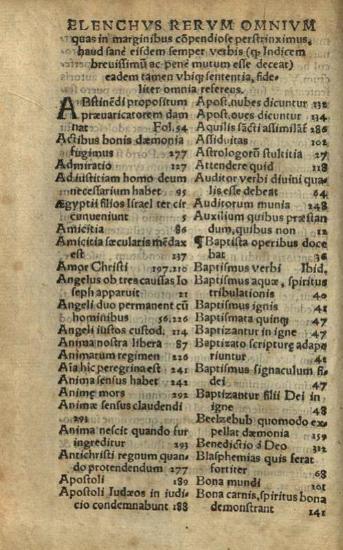 ELENCHVS RERVM OMNIVM
quas in marginibus cōpendiose perstrinximus,
haud sanè eisdem semper verbis (q Indicem
breuissimū ac penè mutum esse deceat)
eadem tamen vbiq; sententia, fide-
liter omnia refereus.
ABstinēdi propositum
præuaricatorem dam
nat Fol. 54
Actibus bonis dæmonia
fugimus 277
Admiratio 127
Ad iustitiam homo deum
necessarium habet 95
Ægyptii filios Israel ter cir
cunueniunt 5
Amicitia 86
Amicitia sæcularis mēdax
est 237
Amor Christi 197,210
Angelus ob tres caussas Io
seph apparuit 21
Angeli duo permanent cū
hominibus 56,226
Angeli iustos custod. 214
Anima nostra libera 87
Animatum regimen 226
Aīa hic peregrina est 241
Anima sensus habet 242
Animę mors 292
Animæ sensus claudendi
293
Anima nescit quando fur
ingreditur 293
Antichristi regnum quan-
do protendendum 277
Apostoli 189
Apostoli Iudæos in iudi-
cio condemnabunt 188
Apost. nubes dicuntur 232
Apost. oues dicuntur 234
Aquilis sācti assimilāt 286
Assiduitas 102
Astrologorū stultitia 27
Attendere quid 118
Auditor verbi diuini qua-
lis esse debeat 64
Auditorum munia 248
Auxilium quibus præstan
dum, quibus non 12
¶ Baptista operibus doce
bat 36
Baptismus verbi Ibid.
Baptismus aquæ, spiritus
tribulationis 40
Baptismus ignis 41
Baptismata quinq; 47
Baptizantur in igne 47
Baptizato scripturę adape
riuntur 41
Baptismus signaculum fi-
dei 47
Baptizantur filii Dei in
igne 48
Beelzebub quomodo ex-
pellat dæmonia 159
Benedictio à Deo 312
Blasphemias quis ferat
fortiter 68
Bona mundi 101
Bona carnis, spiritus bona
demonstrant 241